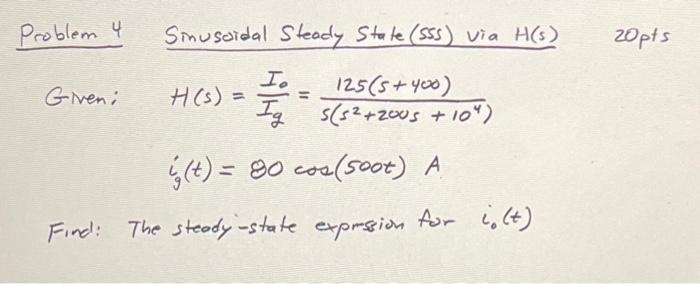 Problem 4 Sinusoidal Steady State (SSS) via H(s) 20pts
Given: H(s) = I₀/I_g = 125(s+400) / s(s²+200s+10⁴)
i_g(t) = 80 cos(500t) A
Find: The steady-state exprssion for i₀(t)